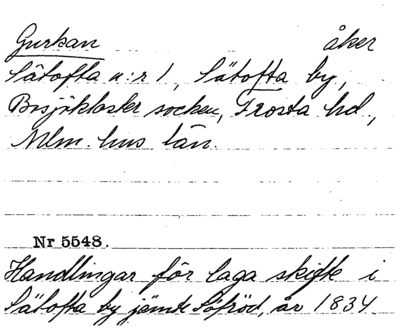 Gurkan åker
Sätofta n:r 1, Sätofta by,
Bosjökloster socken, Frosta hd.,
Mlm. hus län.
Nr 5548.
Handlingar för laga skifte i
Sätofta by jämte Söfröd, år 1834